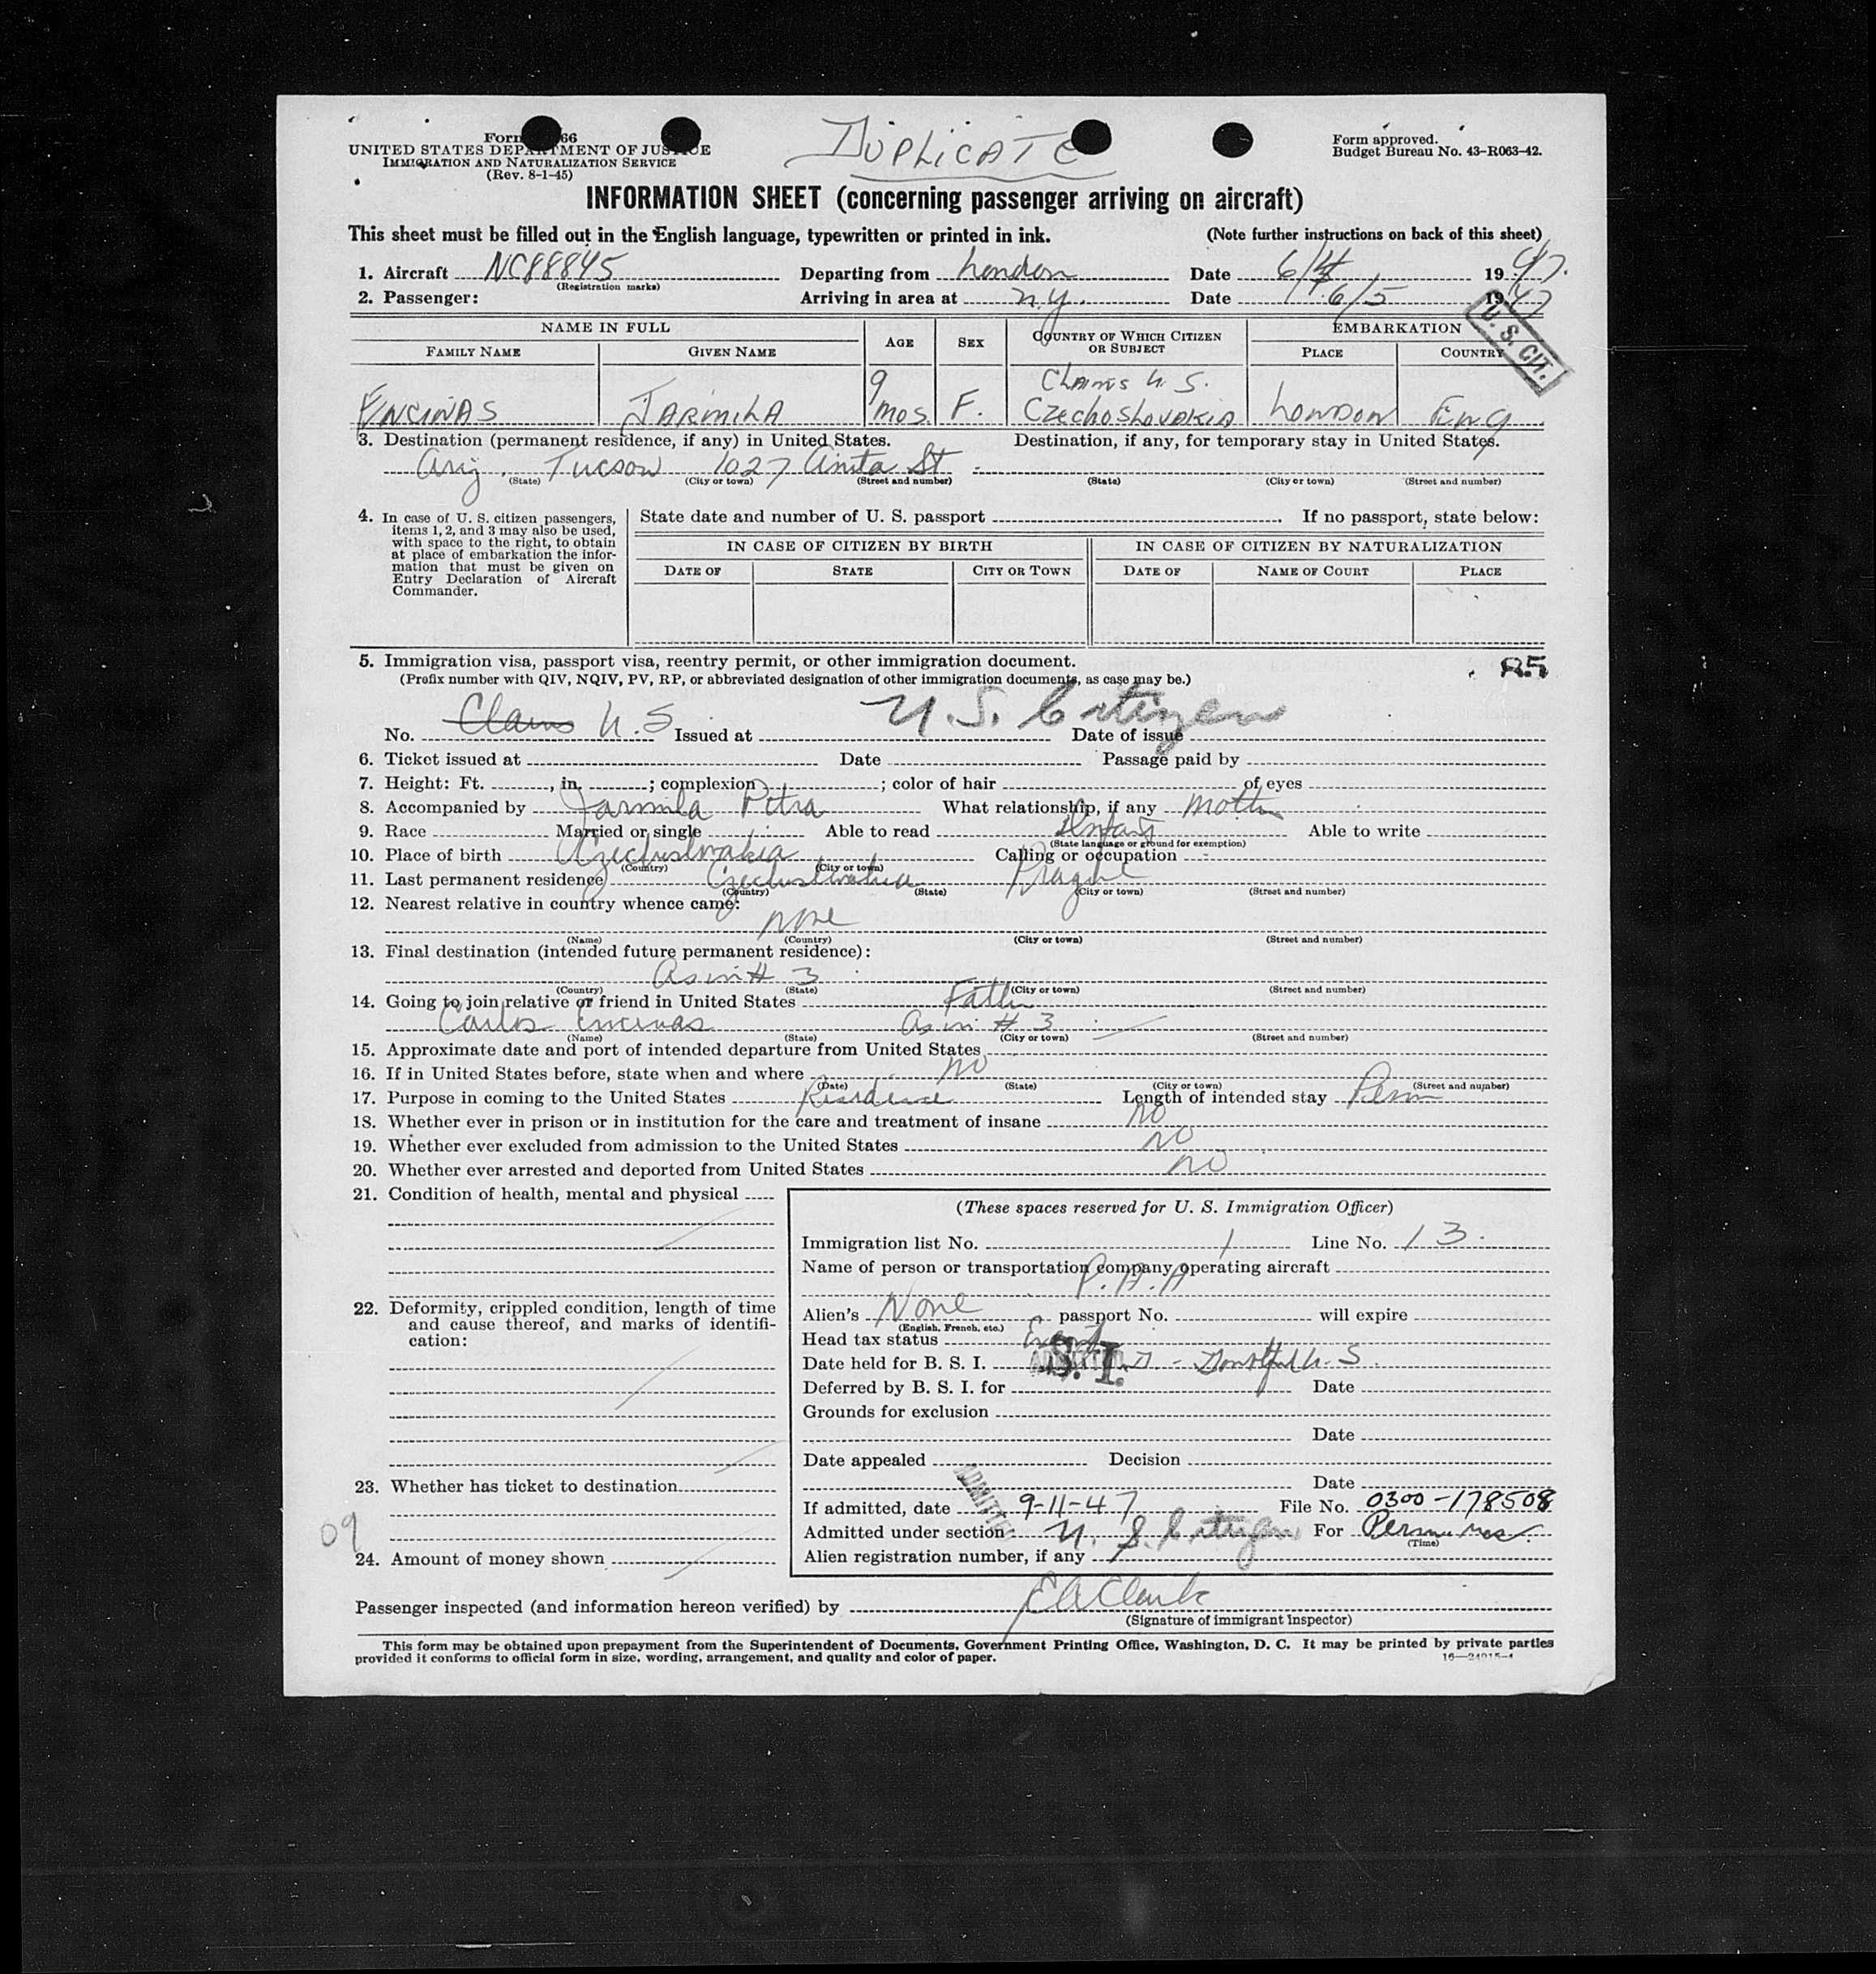 DUPLICATE
Form 66
UNITED STATES DEPARTMENT OF JUSTICE
IMMIGRATION AND NATURALIZATION SERVICE
(Rev. 8-1-45)
Form approved.
Budget Bureau No. 43-R063-42.
INFORMATION SHEET (concerning passenger arriving on aircraft)
This sheet must be filled out in the English language, typewritten or printed in ink. (Note further instructions on back of this sheet)
1. Aircraft NC88845 Departing from London Date 6/4 1947.
(Registration marks)
2. Passenger: Arriving in area at N.Y. Date 6/5 1947
U. S. CIT.
NAME IN FULL AGE SEX COUNTRY OF WHICH CITIZEN OR SUBJECT EMBARKATION
FAMILY NAME GIVEN NAME PLACE COUNTRY
9 Claims U. S.
ENCINAS JARMILA mos. F. CZECHOSLOVAKIA LONDON ENG.
3. Destination (permanent residence, if any) in United States. Destination, if any, for temporary stay in United States.
Ariz. Tucson 1027 Anita St
(State) (City or town) (Street and number) (State) (City or town) (Street and number)
4. In case of U. S. citizen passengers, items 1, 2, and 3 may also be used, with space to the right, to obtain at place of embarkation the information that must be given on Entry Declaration of Aircraft Commander.
State date and number of U. S. passport . If no passport, state below:
IN CASE OF CITIZEN BY BIRTH IN CASE OF CITIZEN BY NATURALIZATION
DATE OF STATE CITY OR TOWN DATE OF NAME OF COURT PLACE
5. Immigration visa, passport visa, reentry permit, or other immigration document. 85
(Prefix number with QIV, NQIV, PV, RP, or abbreviated designation of other immigration documents, as case may be.)
No. Claims U. S Issued at U. S. Citizen Date of issue
6. Ticket issued at Date Passage paid by
7. Height: Ft. , in. ; complexion ; color of hair of eyes
8. Accompanied by Jarmila Petra What relationship, if any Mother
9. Race Married or single Able to read Infant Able to write
(State language or ground for exemption)
10. Place of birth Czechoslovakia Calling or occupation -
(Country) (City or town)
11. Last permanent residence Czechoslovakia Prague
(Country) (State) (City or town) (Street and number)
12. Nearest relative in country whence came:
None
(Name) (Country) (City or town) (Street and number)
13. Final destination (intended future permanent residence):
As in # 3
(Country) (State) (City or town) (Street and number)
14. Going to join relative or friend in United States Father
Carlos Encinas As in # 3
(Name) (State) (City or town) (Street and number)
15. Approximate date and port of intended departure from United States
16. If in United States before, state when and where No
(Date) (State) (City or town) (Street and number)
17. Purpose in coming to the United States Residence Length of intended stay Perm
18. Whether ever in prison or in institution for the care and treatment of insane No
19. Whether ever excluded from admission to the United States No
20. Whether ever arrested and deported from United States No
21. Condition of health, mental and physical
22. Deformity, crippled condition, length of time and cause thereof, and marks of identification:
23. Whether has ticket to destination
09
24. Amount of money shown
(These spaces reserved for U. S. Immigration Officer)
Immigration list No. 1 Line No. 13.
Name of person or transportation company operating aircraft
P. A. A
Alien's None passport No. will expire
(English, French, etc.)
Head tax status
Date held for B. S. I. S. I. U. S.
Deferred by B. S. I. for Date
Grounds for exclusion
Date
Date appealed Decision
Date
ADMITTED
If admitted, date 9-11-47 File No. 0300-178508
Admitted under section U. S. Citizen For
(Time)
Alien registration number, if any
Passenger inspected (and information hereon verified) by E A Clark
(Signature of immigrant inspector)
This form may be obtained upon prepayment from the Superintendent of Documents, Government Printing Office, Washington, D. C. It may be printed by private parties
provided it conforms to official form in size, wording, arrangement, and quality and color of paper. 16—24015-1